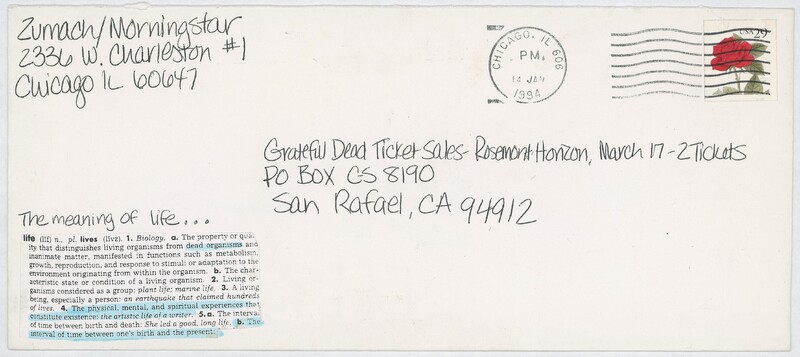 Zumach/Morningstar
2336 W. Charleston #1
Chicago IL 60647
CHICAGO, IL 606
PM
14 JAN
1994
USA 29
Grateful Dead Ticket Sales- Rosemont Horizon, March 17-2 Tickets
PO BOX CS 8190
San Rafael, CA 94912
The meaning of life...
life (līf) n., pl. lives (līvz). 1. Biology. a. The property or qual
ity that distinguishes living organisms from dead organisms and
inanimate matter, manifested in functions such as metabolism,
growth, reproduction, and response to stimuli or adaptation to the
environment originating from within the organism. b. The char-
acteristic state or condition of a living organism. 2. Living or-
ganisms considered as a group: plant life; marine life. 3. A living
being, especially a person: an earthquake that claimed hundreds
of lives. 4. The physical, mental, and spiritual experiences that
constitute existence: the artistic life of a writer. 5. a. The interval
of time between birth and death: She led a good, long life. b. The
interval of time between one's birth and the present: